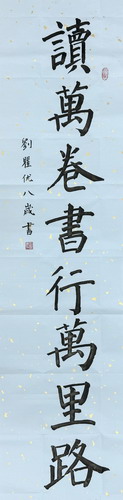 讀萬卷書行萬里路
劉瞿優八歲書